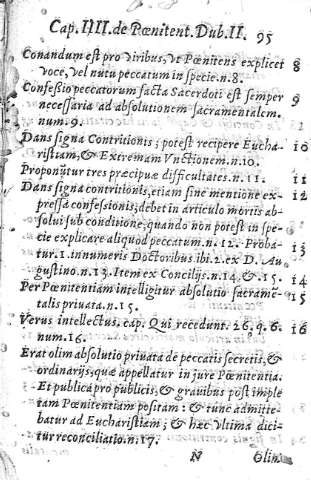 Cap. IIII. de Pœnitent. Dub. II. 95
Conandum est pro viribus, vt Pœnitens explicet 8
voce, vel nutu peccatum in specie. n. 8.
Confessio peccatorum facta Sacerdoti est semper 9
necessaria ad absolutionem sacramentalem.
num. 9.
Dans signa Contritionis; potest recipere Eucha- 10
ristiam, & Extremam Vnctionem. n. 10.
Proponũtur tres præcipuæ difficultates. n. 11. 11
Dans signa contritionis, etiam sine mentione ex- 12
pressa confessionis; debet in articulo mortis ab-
solui sub conditione, quando non potest in spe-
cie explicare aliquod peccatum. n. 12. Proba- 13
tur. 1. innumeris Doctoribus ibi. 2. ex D. Au-
gustino. n. 13. Item ex Concilijs. n. 14. & . 15. 14
Per Pœnitentiam intelligitur absolutio sacramẽ- 15
talis priuata. n. 15.
Verus intellectus. cap. Qui recedunt. 26. q. 6. 16
num. 16.
Erat olim absolutio priuata de peccatis secretis, &
ordinarijs, quæ appellatur in jure Pœnitentia.
Et publica pro publicis, & grauibus post imple
tam Pœnitentiam positam: & tunc admitte-
batur ad Eucharistiam; & hæc vltima dici-
tur reconciliatio. n. 17.
N Olim